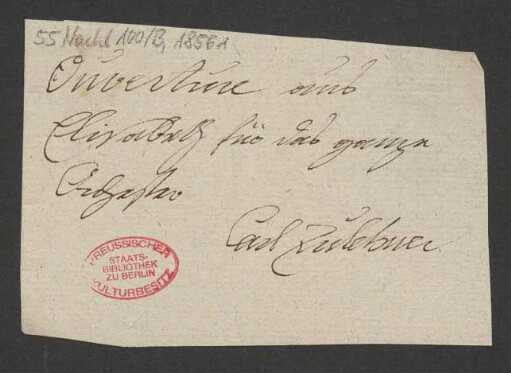 55 Nachl 100/B, 1856 1
Ouverture aus
Elisabeth für das ganze
Orchester
Carl Zulehner.
PREUSSISCHER
STAATS-
BIBLIOTHEK
ZU BERLIN
KULTURBESITZ